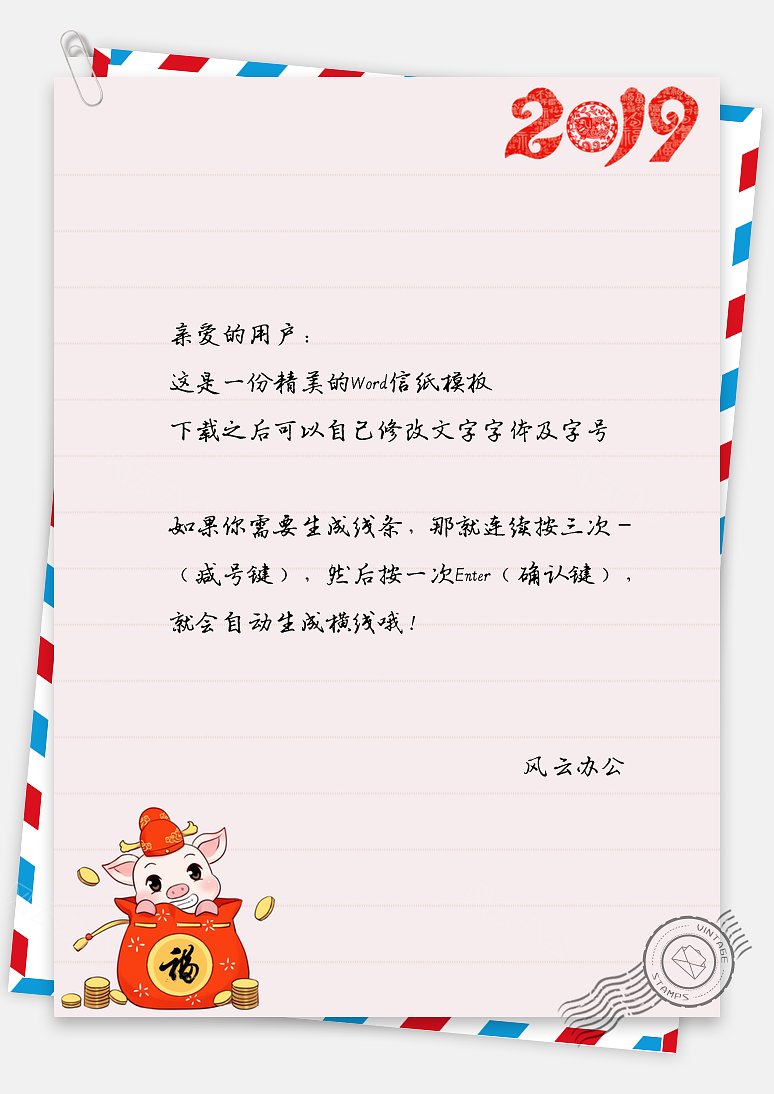 2019
亲爱的用户：
这是一份精美的Word信纸模板
下载之后可以自己修改文字字体及字号
如果你需要生成线条，那就连续按三次－
（减号键），然后按一次Enter（确认键），
就会自动生成横线哦！
风云办公
福
VINTAGE
STAMPS